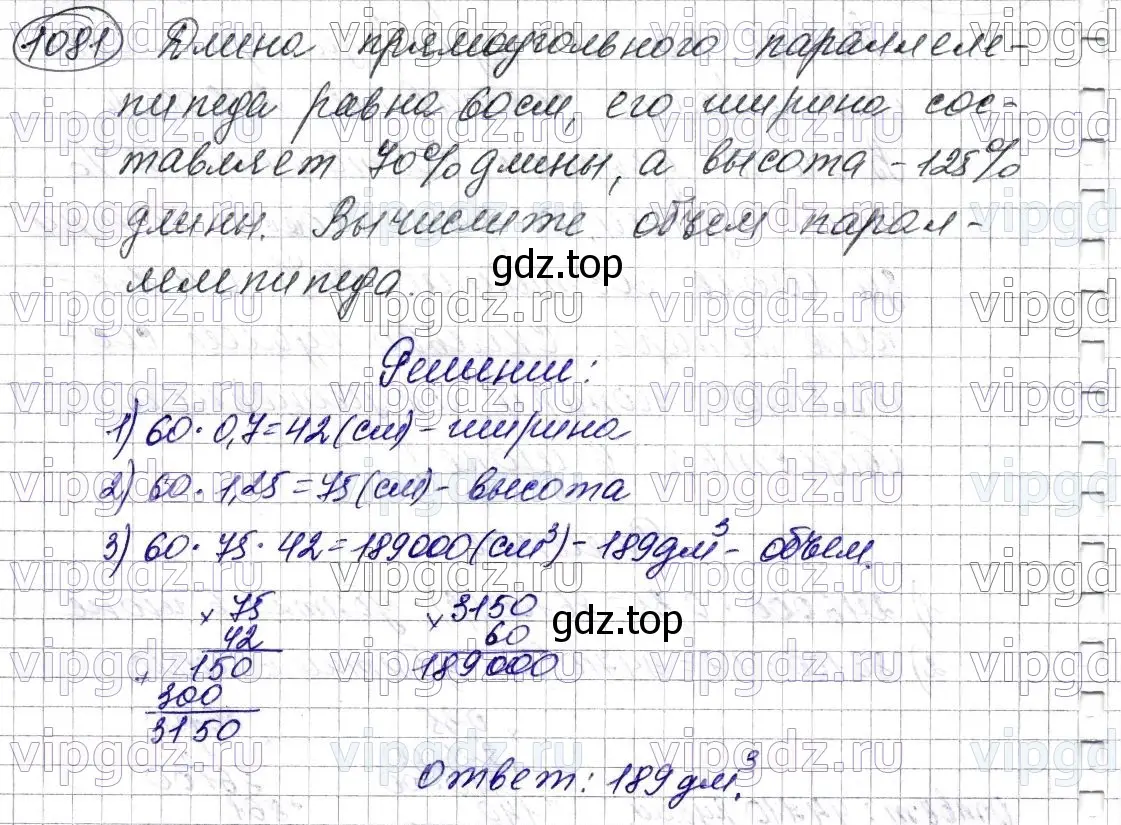 1081 Длина прямоугольного параллеле-
пипеда равна 60см, его ширина сос-
тавляет 70% длины, а высота - 125%
длины. Вычислите объем парал-
лелепипеда.
gdz.top
Решение:
1) 60 · 0,7 = 42 (см) - ширина
2) 60 · 1,25 = 75 (см) - высота
3) 60 · 75 · 42 = 189000 (см³) - 189 дм³ - объем.
× 75
42
+ 150
300
3150
× 3150
60
189000
gdz.top
Ответ: 189 дм³.
vipgdz.ru